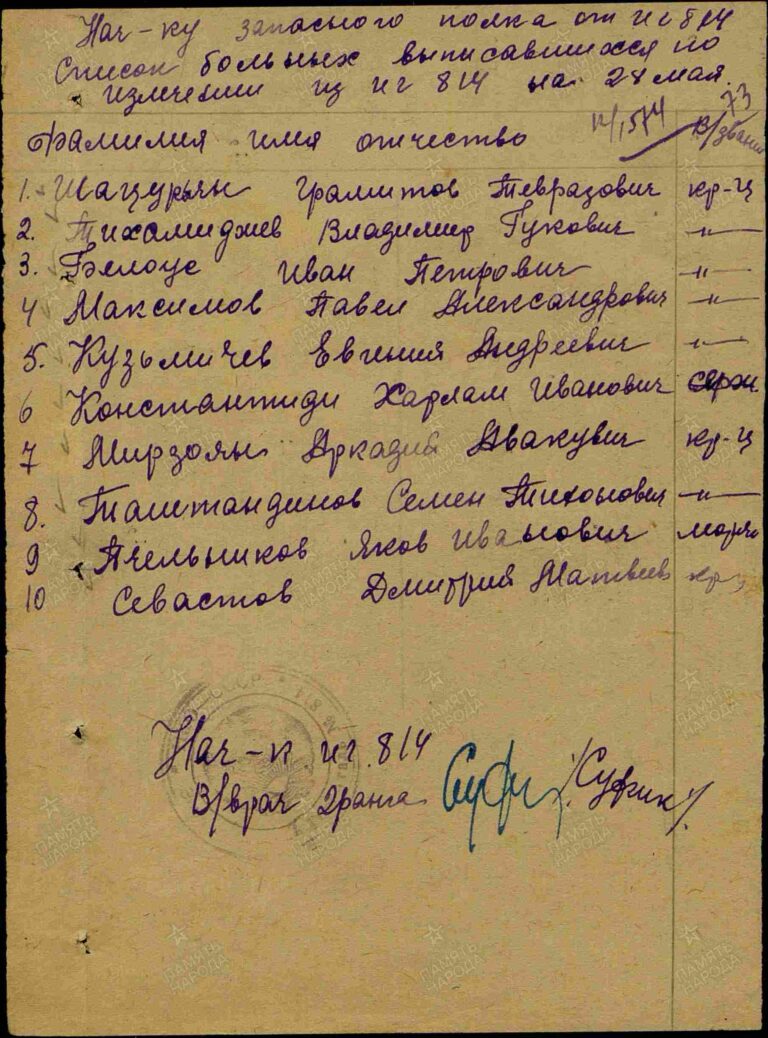 Нач-ку запасного полка от иг 814
Список больных выписавшихся по
излечении из иг 814 на 28 мая.
73
Фамилия имя отчество в/звание
1. Шацурьян Грамитов Тевразович кр-ц
2. Тихамиджев Владимир Гукович —"—
3. Белоус Иван Петрович —"—
4 Максимов Павел Александрович —"—
5. Кузьмичев Евгений Андреевич —"—
6 Константиди Харлам Иванович серж
7 Мирзоян Аркадий Авакович кр-ц
8. Таштандинов Семен Тихонович —"—
9 Пчельников Яков Иванович
10 Севастов Дмитрий Матвеев кр-ц
Нач-к иг. 814
В/врач 2ранга /Суфик/